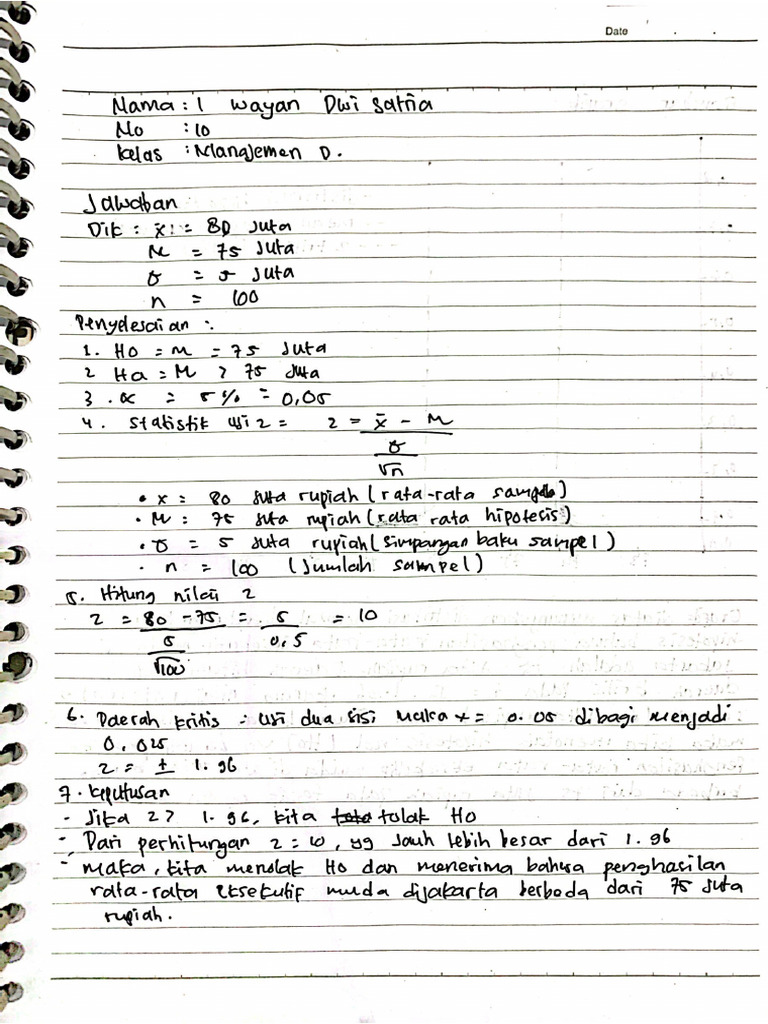 Date . .
Nama : I Wayan Dwi Satria
No : 10
Kelas : Manajemen D.
Jawaban
Dik : x̄ : = 80 Juta
M = 75 Juta
σ = 5 Juta
n = 100
Penyelesaian :
1. Ho = M = 75 Juta
2 Ha = M > 75 Juta
3 . α = 5% = 0,05
4. Statistik uji z = z = x̄ - M
σ
√n
• x = 80 juta rupiah (rata-rata sampel)
• M = 75 juta rupiah (rata rata hipotesis)
• σ = 5 juta rupiah (simpangan baku sampel)
• n = 100 (jumlah sampel)
5. Hitung nilai z
z = 80 - 75 = 5 = 10
5 0,5
√100
6. Daerah kritis = uji dua sisi maka α = 0.05 dibagi menjadi
0.025
z = ± 1.96
7. Keputusan
- Jika z > 1.96, kita tolak Ho
- Dari perhitungan z = 10, yg jauh lebih besar dari 1.96
- Maka, kita menolak Ho dan menerima bahwa penghasilan
rata-rata eksekutif muda dijakarta berbeda dari 75 juta
rupiah.